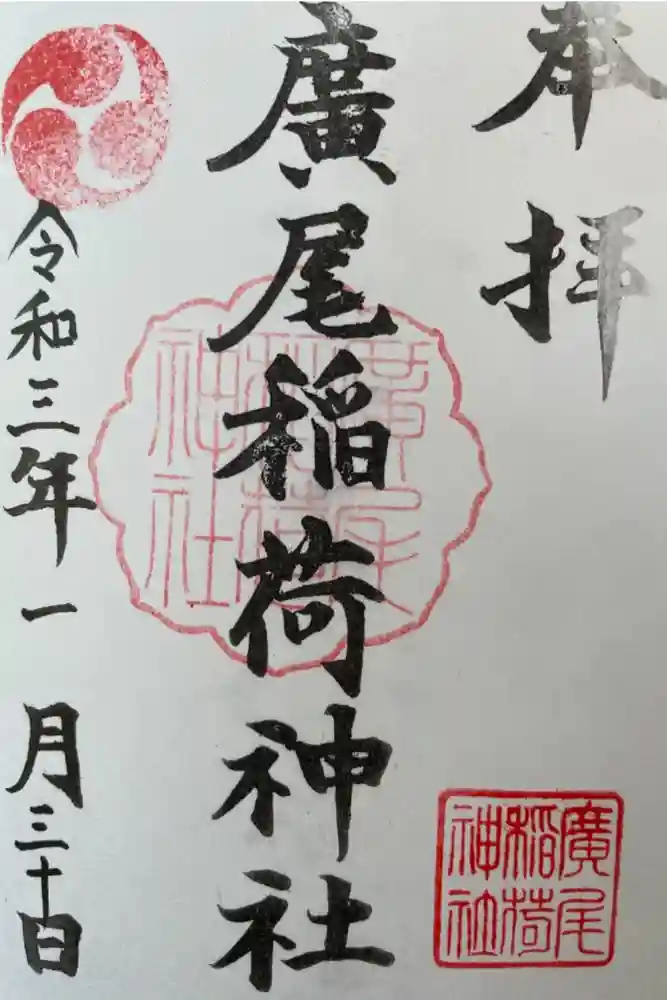 奉拝
廣尾稲荷神社
廣尾稲荷神社
廣尾稲荷神社
令和三年一月三十日